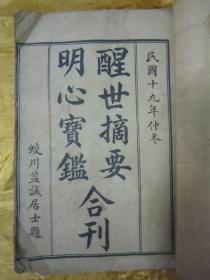 民國十九年仲冬
醒世摘要
明心寶鑑
合刊
蛟川益誠居士題